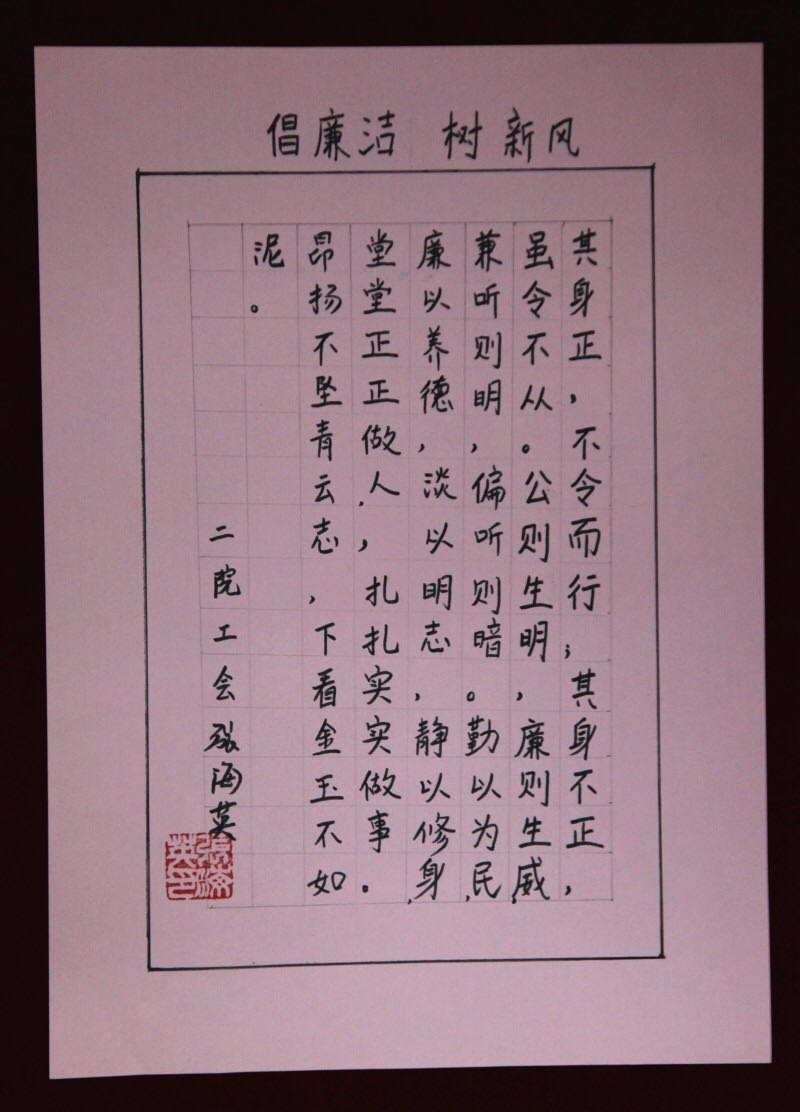 倡廉洁 树新风
其身正，不令而行；其身不正，
虽令不从。公则生明，廉则生威，
兼听则明，偏听则暗。勤以为民，
廉以养德，淡以明志，静以修身，
堂堂正正做人，扎扎实实做事。
昂扬不坠青云志，下看金玉不如
泥。
二院工会张海英
张海英印